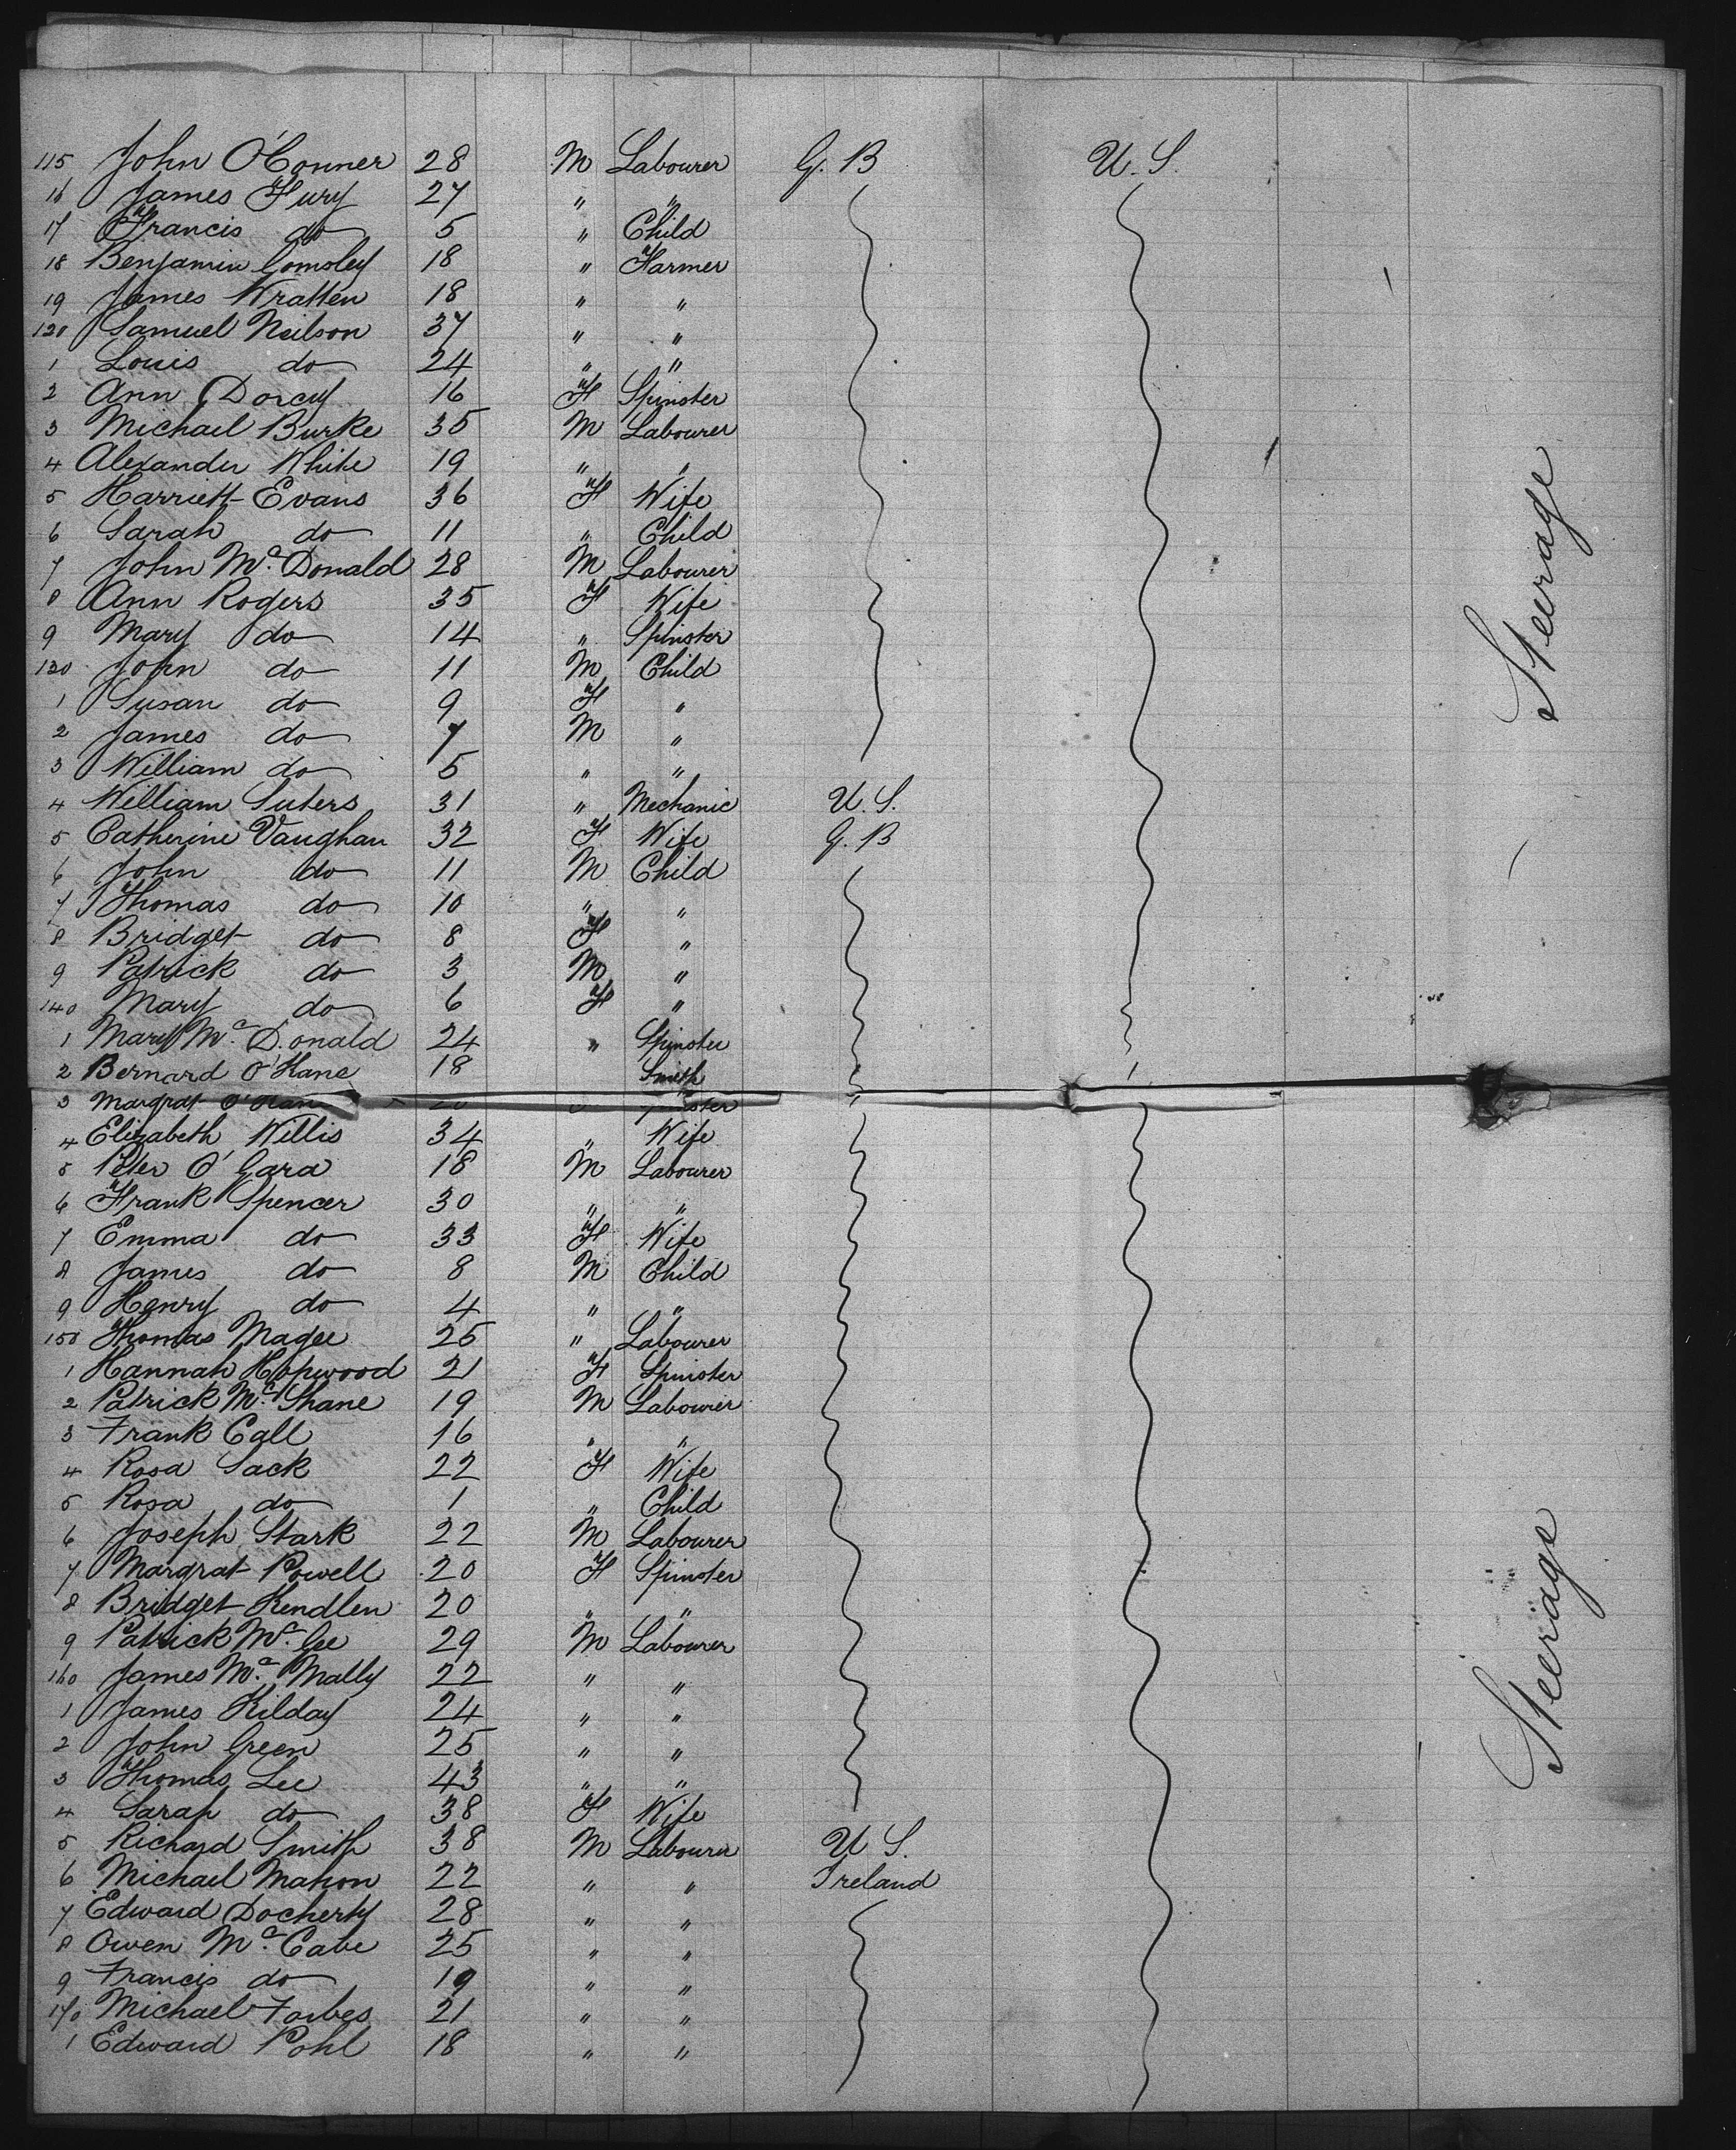 115 John O'Conner 28 M Labourer G. B U. S.
16 James Fury 27 " "
17 Francis do 5 " Child
18 Benjamin Comsley 18 " Farmer
19 James Wratten 18 " "
120 Samuel Neilson 37 " "
1 Louis do 24 " "
2 Ann Dorcy 16 F Spinster
3 Michael Burke 35 M Labourer
4 Alexander White 19 " "
5 Harriett Evans 36 F Wife
6 Sarah do 11 " Child
7 John Mc. Donald 28 M Labourer
8 Ann Rogers 35 F Wife
9 Mary do 14 " Spinster
130 John do 11 M Child
1 Susan do 9 F "
2 James do 7 M "
3 William do 5 " "
4 William Suters 31 " Mechanic U. S.
5 Catherine Vaughan 32 F Wife G. B
6 John do 11 M Child
7 Thomas do 10 " "
8 Bridget do 8 F "
9 Patrick do 3 M "
140 Mary do 6 F "
1 Mary Mc. Donald 24 " Spinster
2 Bernard O'Hane 18 Smith
3 Margrat
4 Elizabeth Willis 34 " Wife
5 Peter O'Gara 18 M Labourer
6 Frank Spencer 30 " "
7 Emma do 33 F Wife
8 James do 8 M Child
9 Henry do 4 " "
150 Thomas Magee 25 " Labourer
1 Hannah Hopwood 21 F Spinster
2 Patrick Mc. Shane 19 M Labourer
3 Frank Call 16 " "
4 Rosa Sack 22 F Wife
5 Rosa do 1 " Child
6 Joseph Stark 22 M Labourer
7 Margrat Powell 20 F Spinster
8 Bridget Kendlen 20 " "
9 Patrick Mc. Gee 29 M Labourer
160 James Mc. Mally 22 " "
1 James Kilday 24 " "
2 John Green 25 " "
3 Thomas Lee 43 " "
4 Sarah do 38 F Wife
5 Richard Smith 38 M Labourer U S.
6 Michael Mahon 22 " " Ireland
7 Edward Docherty 28 " "
8 Owen Mc. Cabe 25 " "
9 Francis do 19 " "
170 Michael Forbes 21 " "
1 Edward Pohl 18 " "
Steerage
Steerage